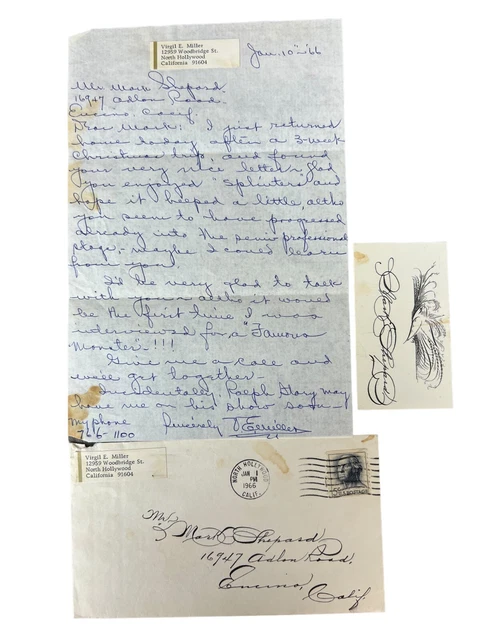 Virgil E. Miller
12959 Woodbridge St.
North Hollywood
California 91604
Jan. 10th '66
Mr Mark Shepard
16947 Adlon Road
Encino, Calif.
Dear Mark: I just returned
home today after a 3-week
Christmas trip, and found
your very nice letter, glad
you enjoyed "Splinters" and
hope it helped a little, altho
you seem to have progressed
already into the semi professional
stage, - maybe I could learn
from you.
I'd be very glad to talk
with you, altho it would
be the first time I was
interviewed for a "Famous
Monster" - !!!
Give me a call and
we'll get together -
Incidentally, Ralph Story may
have me on his show soon -
My phone Sincerely V E Miller
766-1100
Mark E Shepard
Virgil E. Miller
12959 Woodbridge St.
North Hollywood
California 91604
NORTH HOLLYWOOD
JAN
PM
1966
CALIF.
Mr.
Mark Shepard
16947 Adlon Road,
Encino,
Calif.